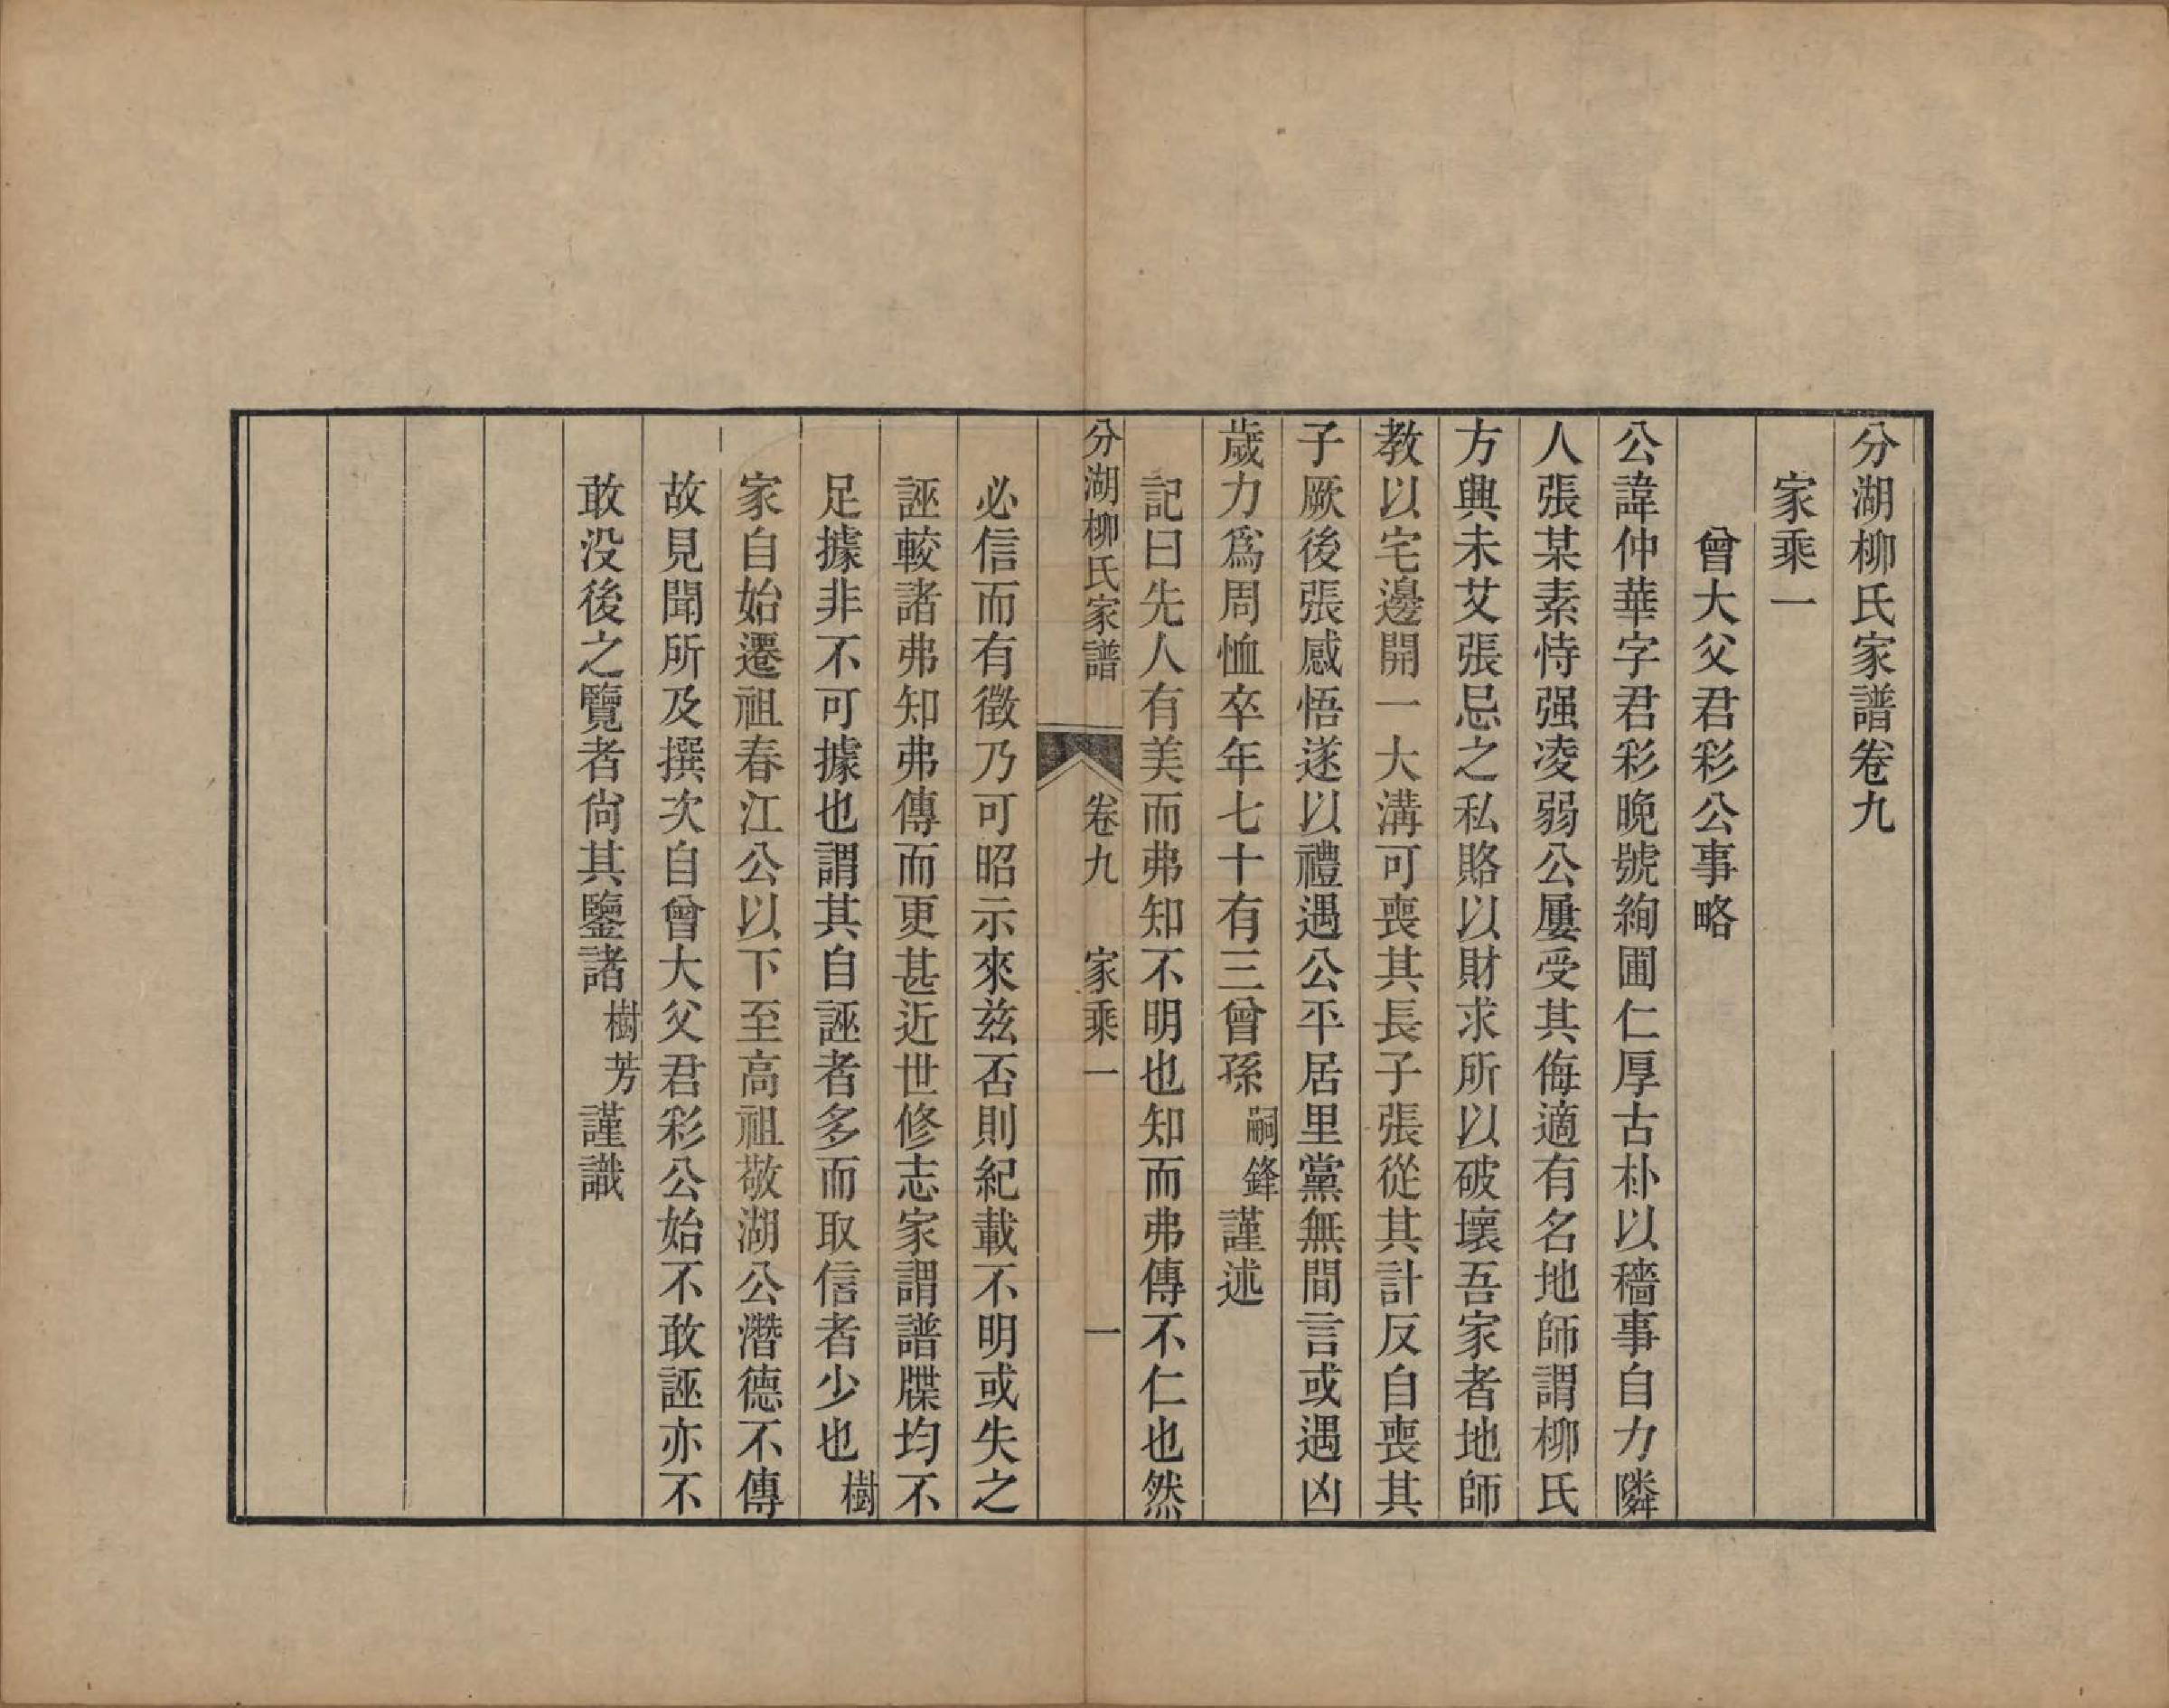 分湖柳氏家譜卷九
家乘一
曾大父君彩公事略
公諱仲華字君彩晚號絢圃仁厚古朴以穡事自力隣
人張某素恃强凌弱公屢受其侮適有名地師謂柳氏
方興未艾張忌之私賂以財求所以破壞吾家者地師
教以宅邊開一大溝可喪其長子張從其計反自喪其
子厥後張感悟遂以禮遇公平居里黨無間言或遇凶
歲力爲周恤卒年七十有三曾孫嗣鋒謹述
記曰先人有美而弗知不明也知而弗傳不仁也然
分湖柳氏家譜 卷九 家乘一 一
必信而有徵乃可昭示來兹否則紀載不明或失之
誣較諸弗知弗傳而更甚近世修志家謂譜牒均不
足據非不可據也謂其自誣者多而取信者少也樹
家自始遷祖春江公以下至高祖敬湖公潛德不傳
故見聞所及撰次自曾大父君彩公始不敢誣亦不
敢没後之覽者尙其鑒諸樹芳謹識